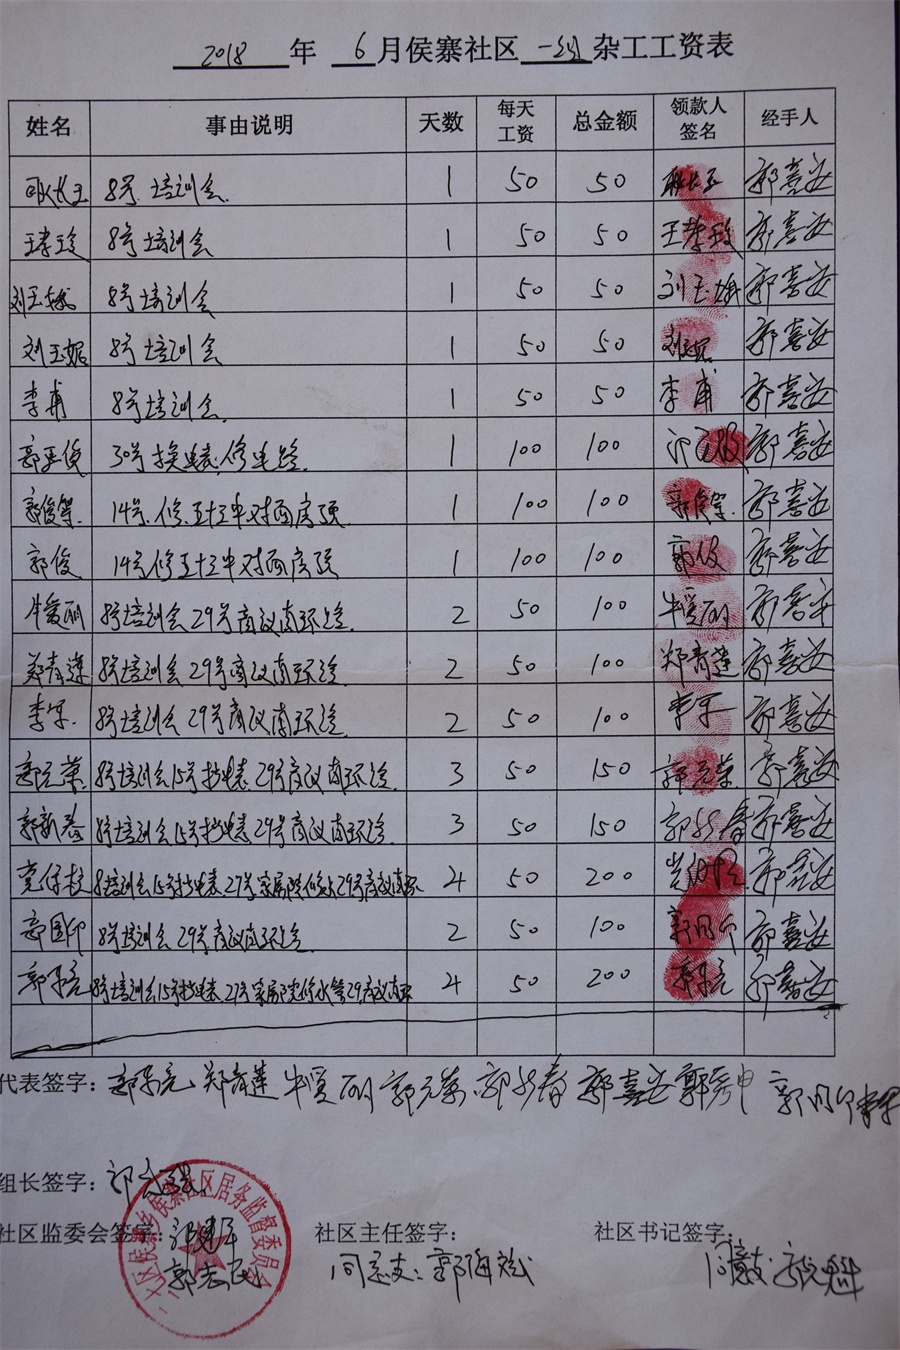 2018 年 6 月侯寨社区 一组 杂工工资表
姓名 事由说明 天数 每天工资 总金额 领款人签名 经手人
8号培训会 1 50 50 郭嘉安
王孝玲 8号培训会 1 50 50 王孝玲 郭嘉安
刘玉娥 8号培训会 1 50 50 刘玉娥 郭嘉安
刘玉妮 8号培训会 1 50 50 郭嘉安
李甫 8号培训会 1 50 50 李甫 郭嘉安
30号换电表修电 1 100 100 郭嘉安
郭俊 14号修五十三中对面房顶 1 100 100 郭俊 郭嘉安
郭俊 14号修五十三中对面房顶 1 100 100 郭俊 郭嘉安
牛爱丽 8号培训会29号商议南环 2 50 100 牛爱丽 郭嘉安
郑青莲 8号培训会29号商议南环 2 50 100 郑青莲 郭嘉安
李军 8号培训会29号商议南环 2 50 100 李军 郭嘉安
郭元荣 8号培训会15号抄电表29号商议南环 3 50 150 郭元荣 郭嘉安
郭新春 8号培训会15号抄电表29号商议南环 3 50 150 郭新春 郭嘉安
8号培训会15号抄电表27号家属院修水29号商议南环 4 50 200 郭嘉安
郭国印 8号培训会29号商议南环 2 50 100 郭国印 郭嘉安
8号培训会15号抄电表27号家属院修水管29商议南环 4 50 200 郭嘉安
代表签字： 郑青莲 牛爱丽 郭元荣 郭新春 郭嘉安 郭国印 李军
组长签字：
社区监委会签字：
社区主任签字：
社区书记签字：
郭志民
同意支：郭海斌
同意支：
侯寨乡侯寨社区居务监督委员会